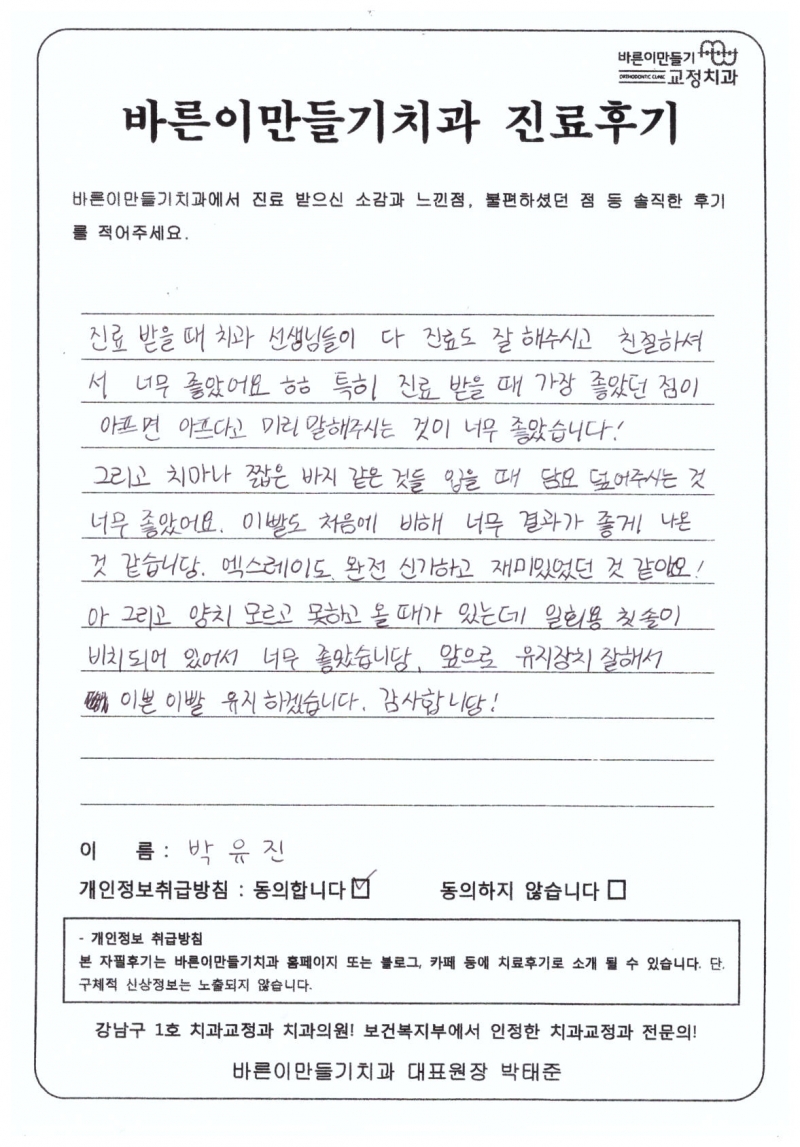 바른이만들기
ORTHODONTIC CLINIC 교정치과
바른이만들기치과 진료후기
바른이만들기치과에서 진료 받으신 소감과 느낀점, 불편하셨던 점 등 솔직한 후기
를 적어주세요.
진료 받을 때 치과 선생님들이 다 진료도 잘 해주시고 친절하셔
서 너무 좋았어요 ㅎㅎ 특히 진료 받을 때 가장 좋았던 점이
아프면 아프다고 미리 말해주시는 것이 너무 좋았습니다!
그리고 치마나 짧은 바지 같은 것들 입을 때 담요 덮어주시는 것
너무 좋았어요. 이빨도 처음에 비해 너무 결과가 좋게 나온
것 같습니당. 엑스레이도 완전 신기하고 재미있었던 것 같아요!
아 그리고 양치 모르고 못하고 올 때가 있는데 일회용 칫솔이
비치되어 있어서 너무 좋았습니당. 앞으로 유지장치 잘해서
이쁜 이빨 유지하겠습니다. 감사합니당!
이 름 : 박유진
개인정보취급방침 : 동의합니다 ☑ 동의하지 않습니다 □
- 개인정보 취급방침
본 자필후기는 바른이만들기치과 홈페이지 또는 블로그, 카페 등에 치료후기로 소개 될 수 있습니다. 단.
구체적 신상정보는 노출되지 않습니다.
강남구 1호 치과교정과 치과의원! 보건복지부에서 인정한 치과교정과 전문의!
바른이만들기치과 대표원장 박태준